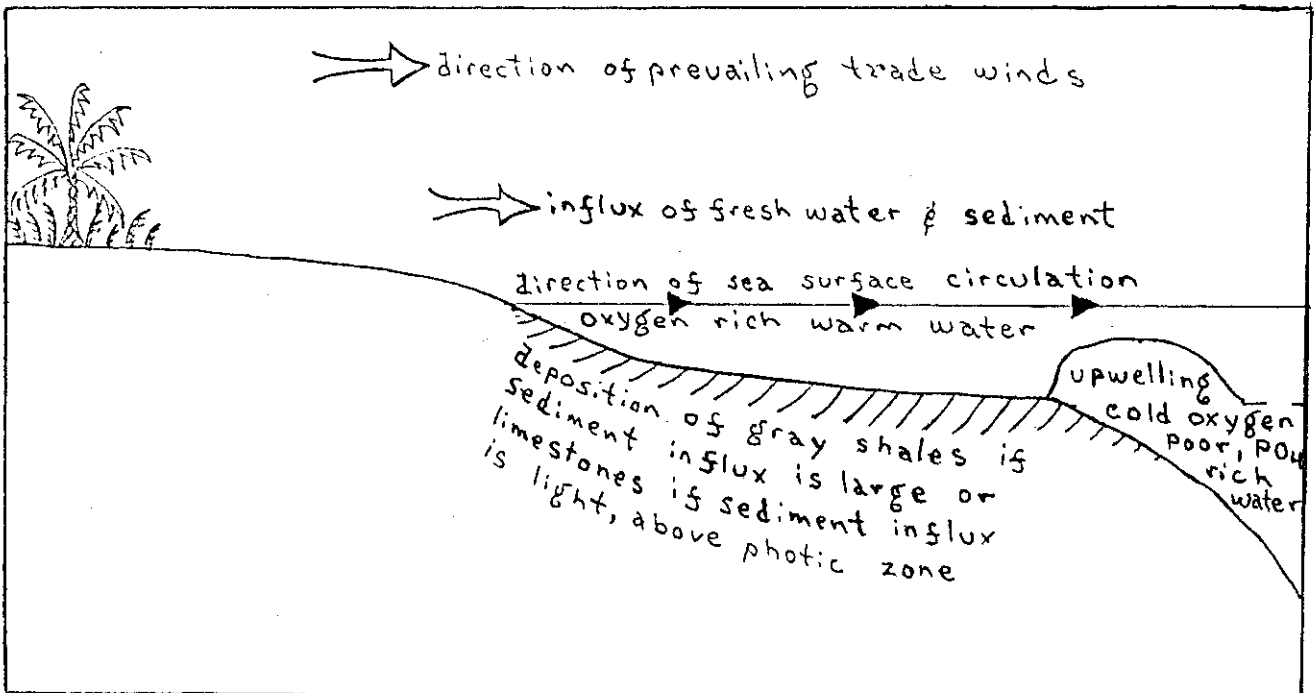 direction of prevailing trade winds
influx of fresh water & sediment
direction of sea surface circulation
oxygen rich warm water
deposition of gray shales if
sediment influx is large or
limestones if sediment influx
is light, above photic zone
upwelling
cold oxygen
poor, PO4
rich
water